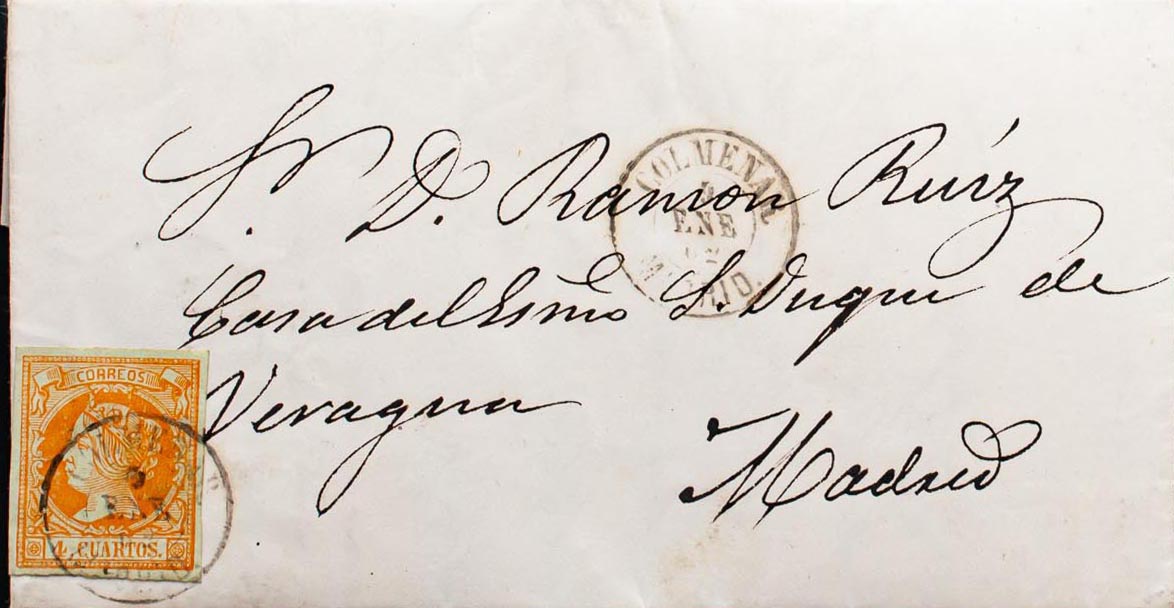 Sr. D. Ramon Ruíz
Casa del Esmo S. Duque de
Veragua
Madrid
COLMENAR
4
ENE
MADRID.
CORREOS
4 CUARTOS.